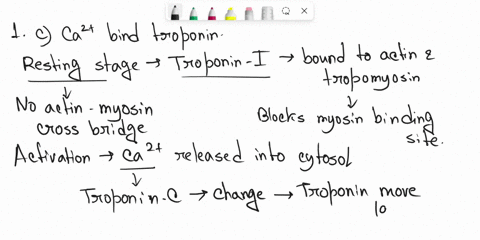 1. c) Ca²⁺ bind troponin.
Resting stage → Troponin-I → bound to actin &
tropomyosin
↓
No actin-myosin
cross bridge
↓
Blocks myosin binding
site.
Activation → Ca²⁺ released into cytosol
↓
Troponin-C → change → Troponin move